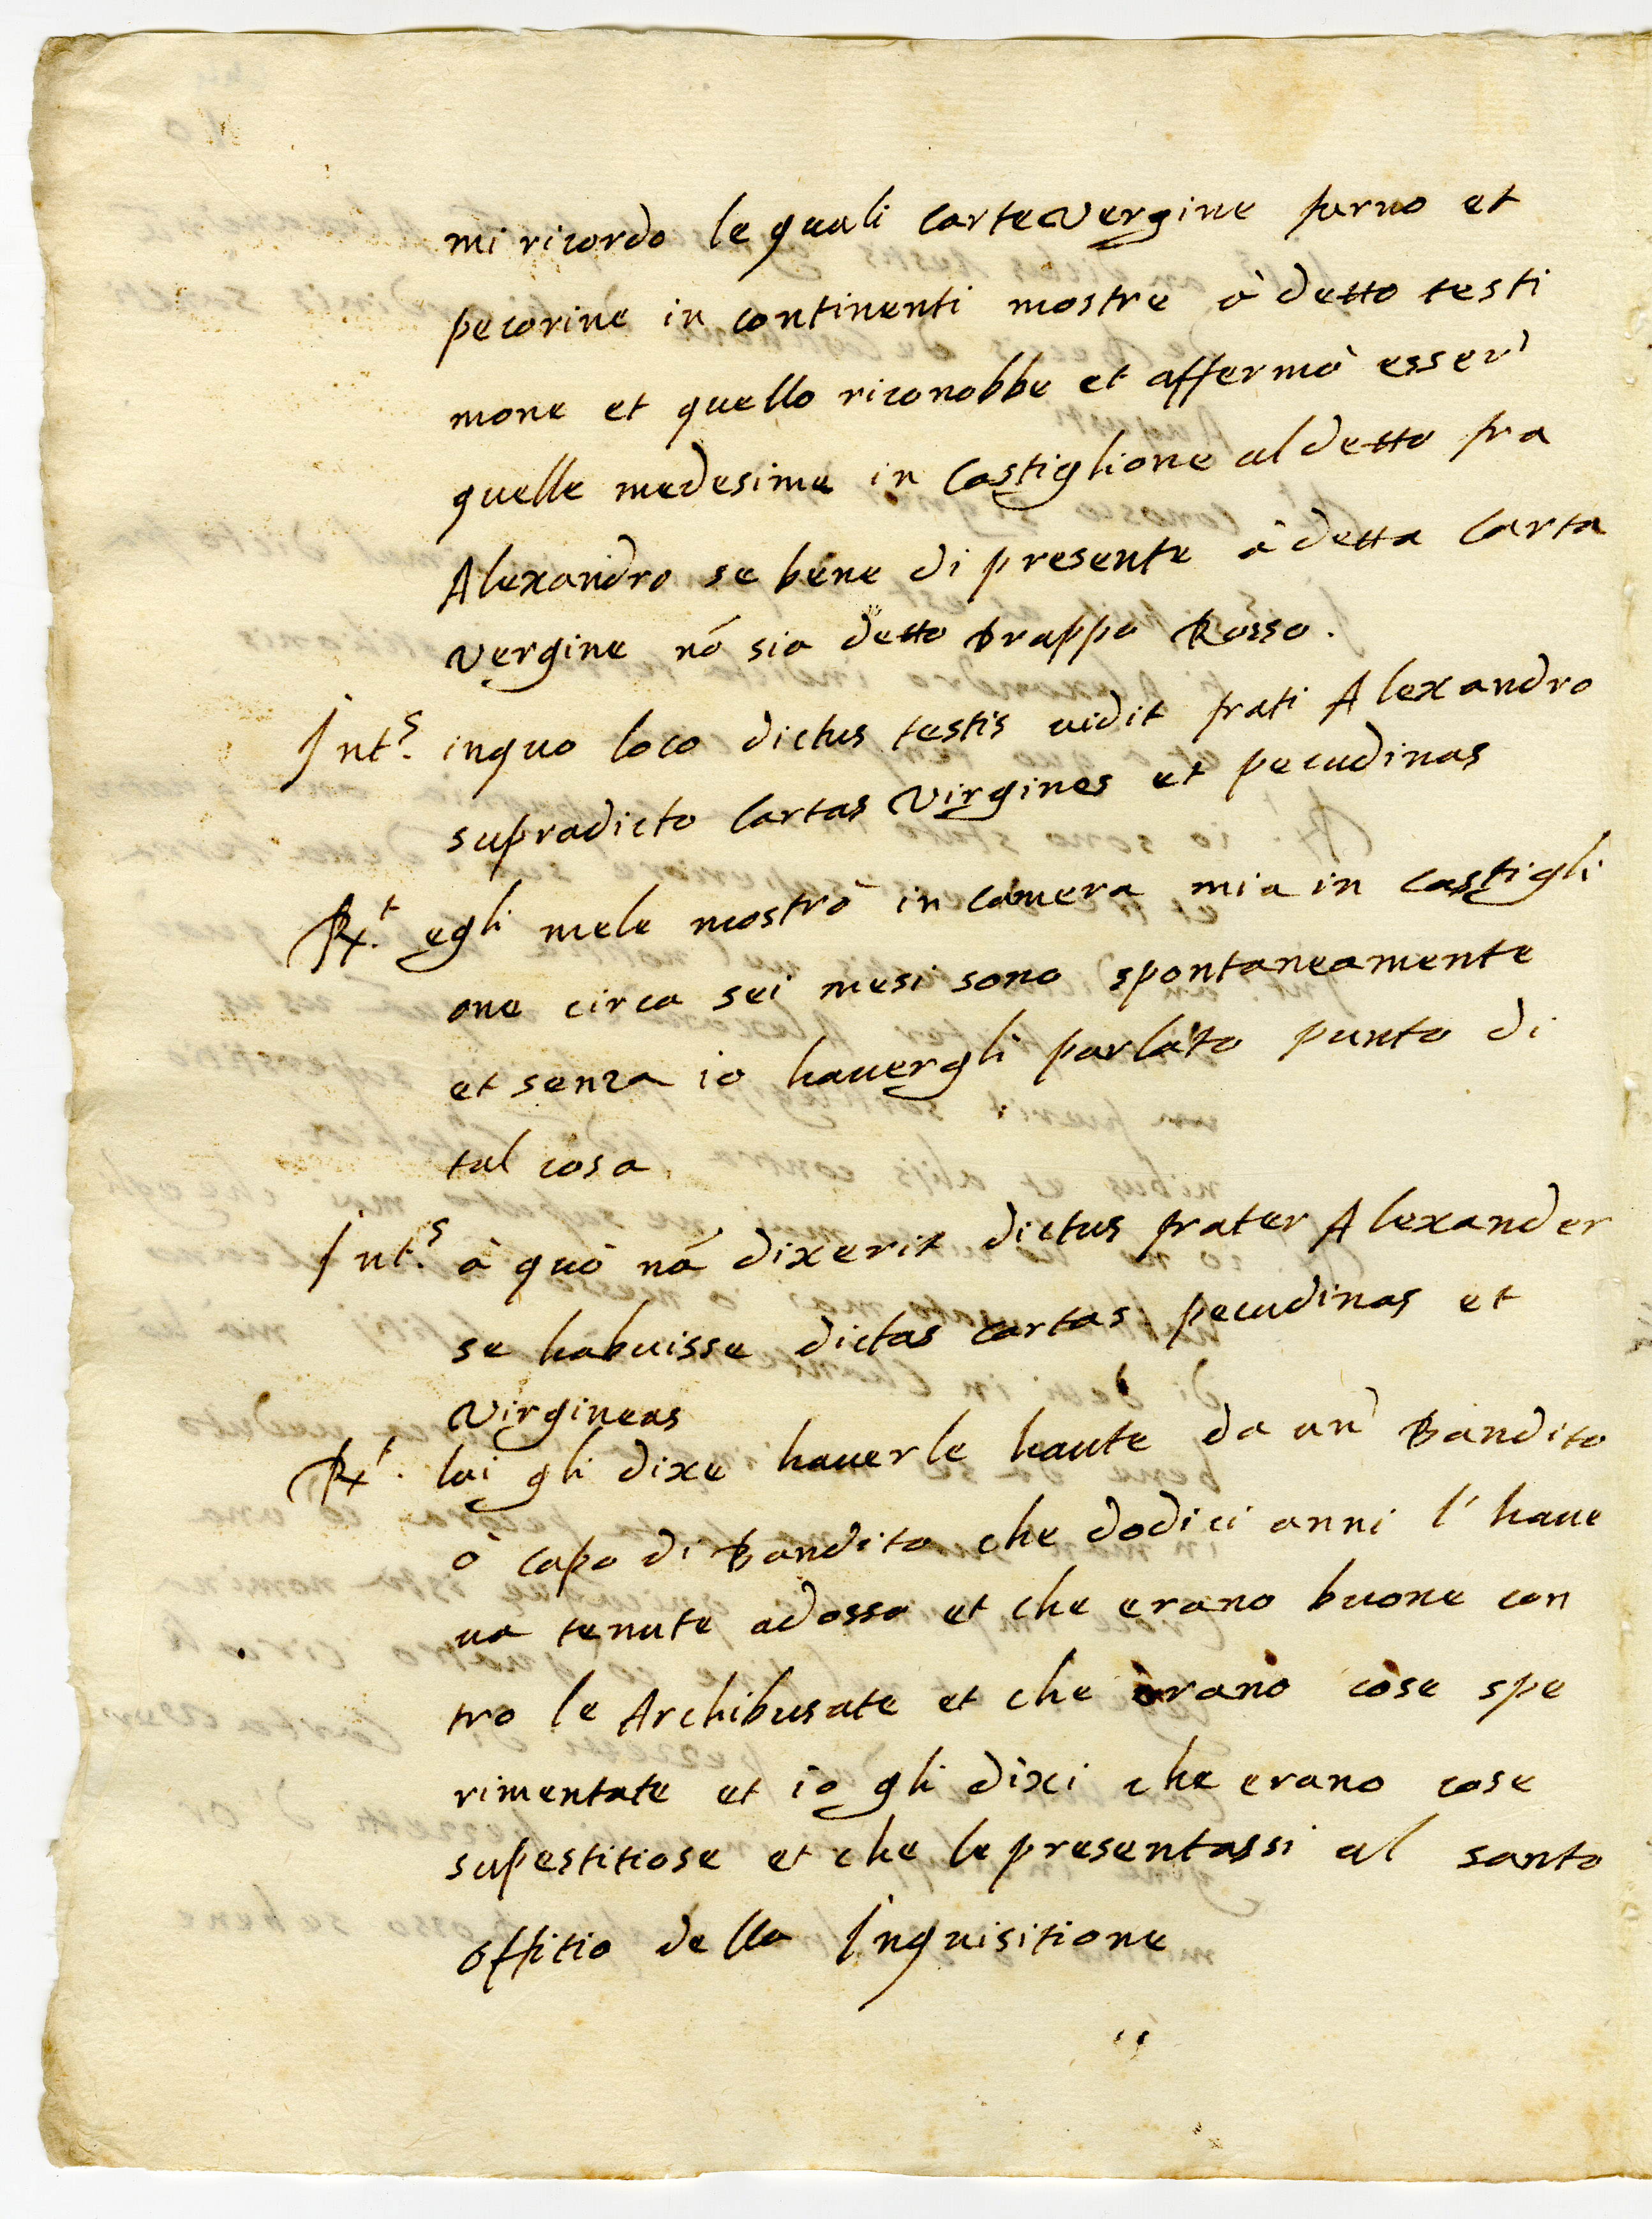 mi ricordo le quali carte vergine furno et
pecorine in continenti mostre à detto testi
mone et quello riconobbe et affermò esser
quelle medesime in Castiglione al detto fra
Alexandro se bene di presente à detta carta
vergine nō sia detto Drappo Rosso.
Int.s inquo loco dictus testis uidit frati Alexandro
supradicto cartas virgines et pecudinas
Rx.t egli mele mostrò in camera mia in castigli
one circa sei mesi sono spontaneamente
et senza io hauergli parlato punto di
tal cosa
Int.s à quò nā dixerit dictus frater Alexander
se habuisse dictas cartas pecudinas et
virgineas
Rx.t lui gli dixe hauerle haute da un Bandito
ò capo di Bandito che dodici anni l'haue
ua tenute adosso et che erano buone con
tro le Archibusate et che erano cose spe
rimentate et io gli dixi che erano cose
supestitiose et che le presentassi al santo
offitio della Inquisitione